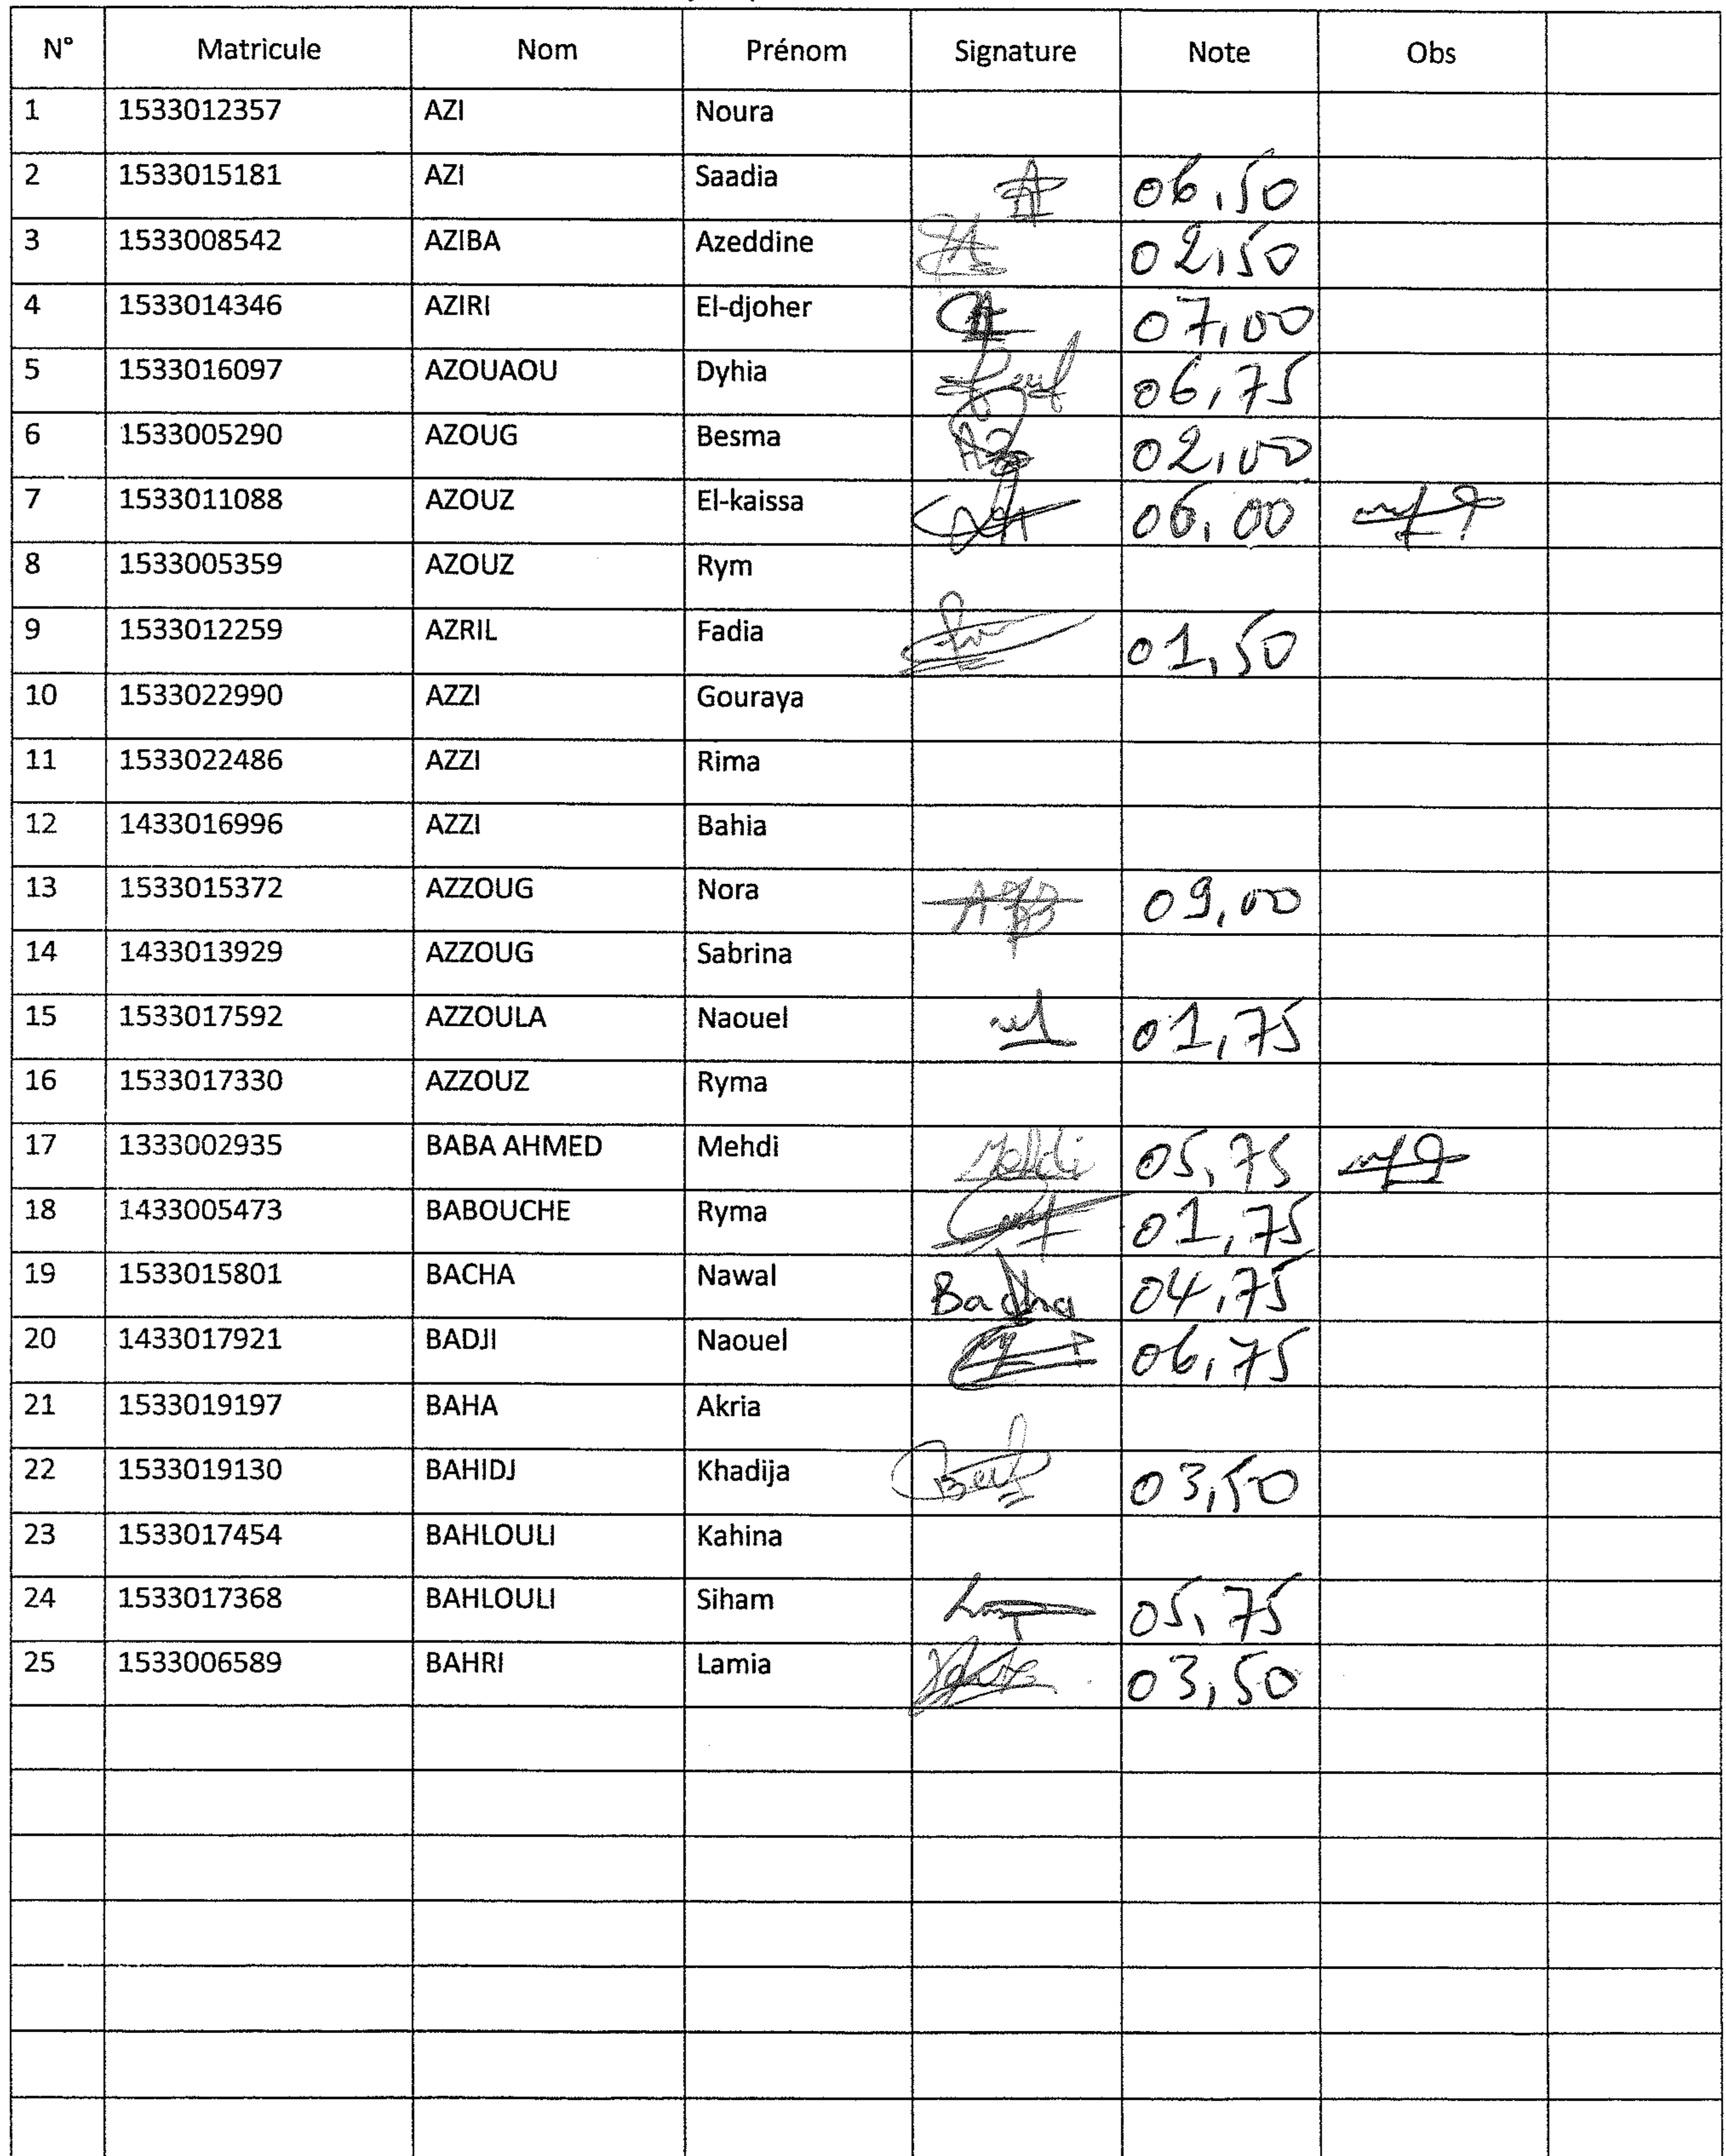 N° Matricule Nom Prénom Signature Note Obs
1 1533012357 AZI Noura
2 1533015181 AZI Saadia 06,50
3 1533008542 AZIBA Azeddine 02,50
4 1533014346 AZIRI El-djoher 07,00
5 1533016097 AZOUAOU Dyhia 06,75
6 1533005290 AZOUG Besma 02,00
7 1533011088 AZOUZ El-kaissa 06,00
8 1533005359 AZOUZ Rym
9 1533012259 AZRIL Fadia 01,50
10 1533022990 AZZI Gouraya
11 1533022486 AZZI Rima
12 1433016996 AZZI Bahia
13 1533015372 AZZOUG Nora 09,00
14 1433013929 AZZOUG Sabrina
15 1533017592 AZZOULA Naouel 01,75
16 1533017330 AZZOUZ Ryma
17 1333002935 BABA AHMED Mehdi Mehdi 05,75
18 1433005473 BABOUCHE Ryma 01,75
19 1533015801 BACHA Nawal Bacha 04,75
20 1433017921 BADJI Naouel 06,75
21 1533019197 BAHA Akria
22 1533019130 BAHIDJ Khadija 03,50
23 1533017454 BAHLOULI Kahina
24 1533017368 BAHLOULI Siham 05,75
25 1533006589 BAHRI Lamia 03,50